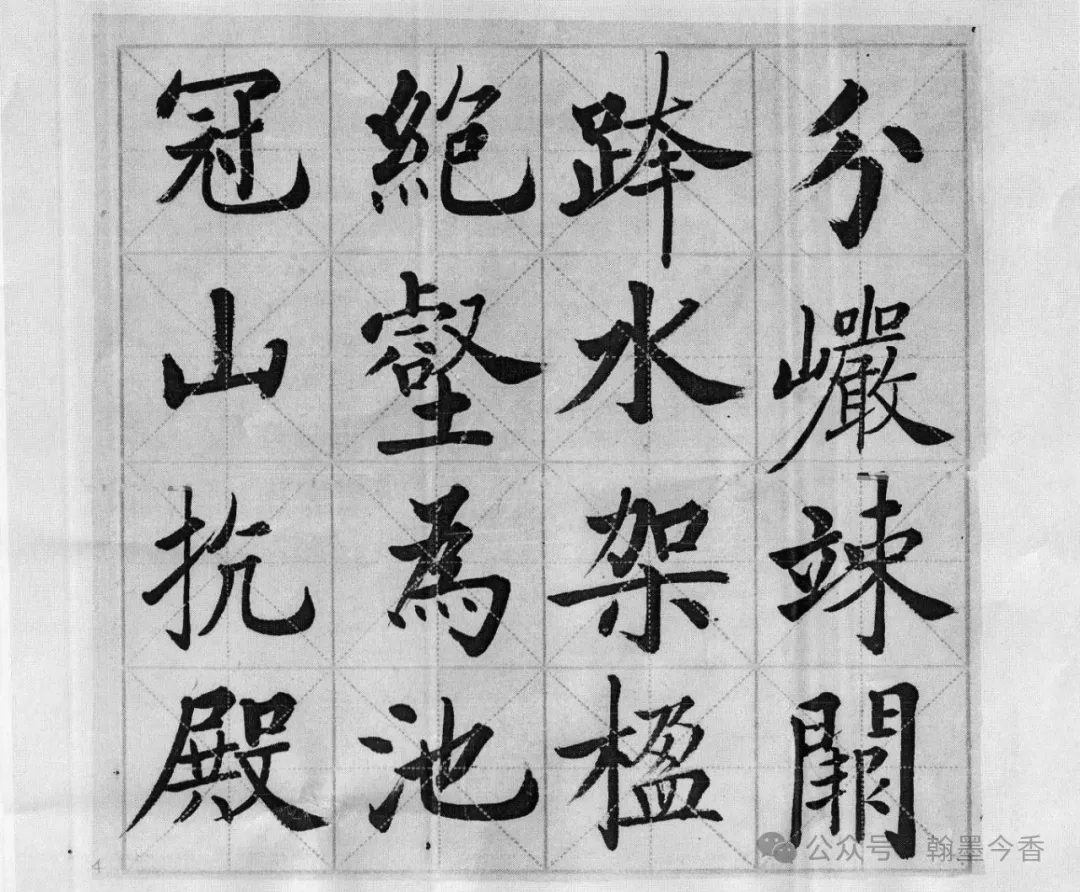 冠山抗殿
絶壑為池
跨水架楹
分巗竦闕
公众号·翰墨今香
4